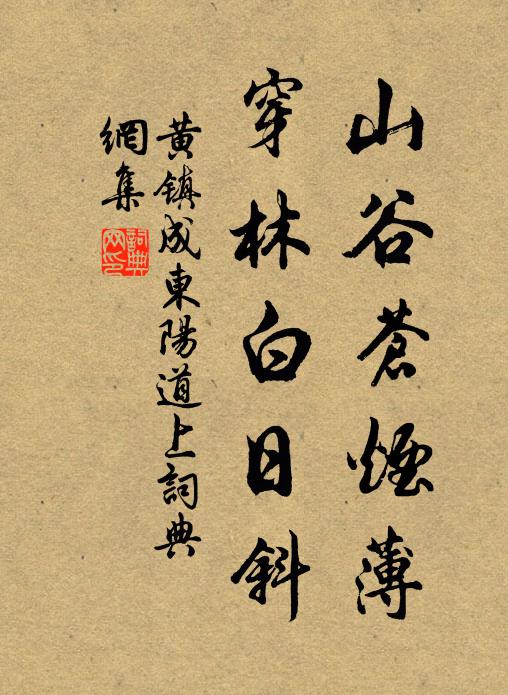 山谷蒼煙薄
穿林白日斜
黄镇成東陽道上詞典
網集
詞典
网印